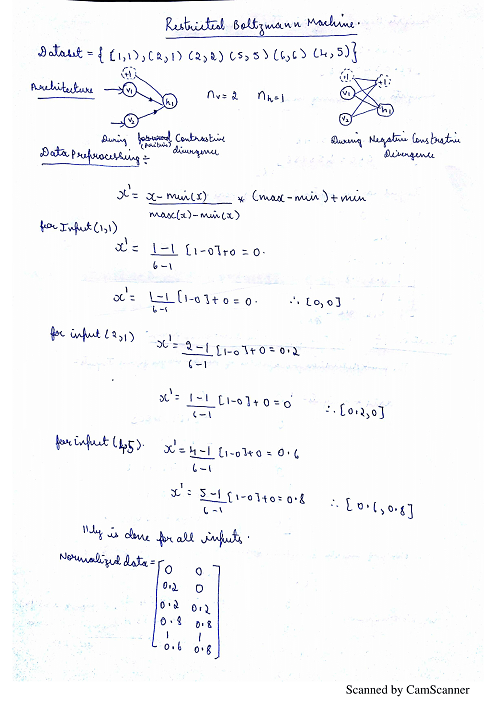 Restricted Boltzmann Machine.
Dataset = { [1,1), (2,1) (2,2) (5,5) (6,6) (4,5)}
Architecture
+1 V1 V2 h1
nv=2 nh=1
+1 V1 V2 +1 h1
During forward Contrastive
(positive) divergence
During Negative Constrative
Divergence
Data Preprocessing ÷
x' = x - min(x) / max(x) - min(x) * (max - min) + min
for Input (1,1)
x' = 1-1 / 6-1 [1-0]+0 = 0.
x' = 1-1 / 6-1 [1-0] + 0 = 0. ∴ [0,0]
for input (2,1)
x' = 2-1 / 6-1 [1-0]+0 = 0.2
x' = 1-1 / 6-1 [1-0]+0 = 0 ∴ [0.2,0]
for input (4,5). x' = 4-1 / 6-1 [1-0]+0 = 0.6
x' = 5-1 / 6-1 [1-0]+0 = 0.8 ∴ [0.6, 0.8]
llly is done for all inputs.
Normalized data = [ 0 0
0.2 0
0.2 0.2
0.8 0.8
1 1
0.6 0.8 ]
Scanned by CamScanner